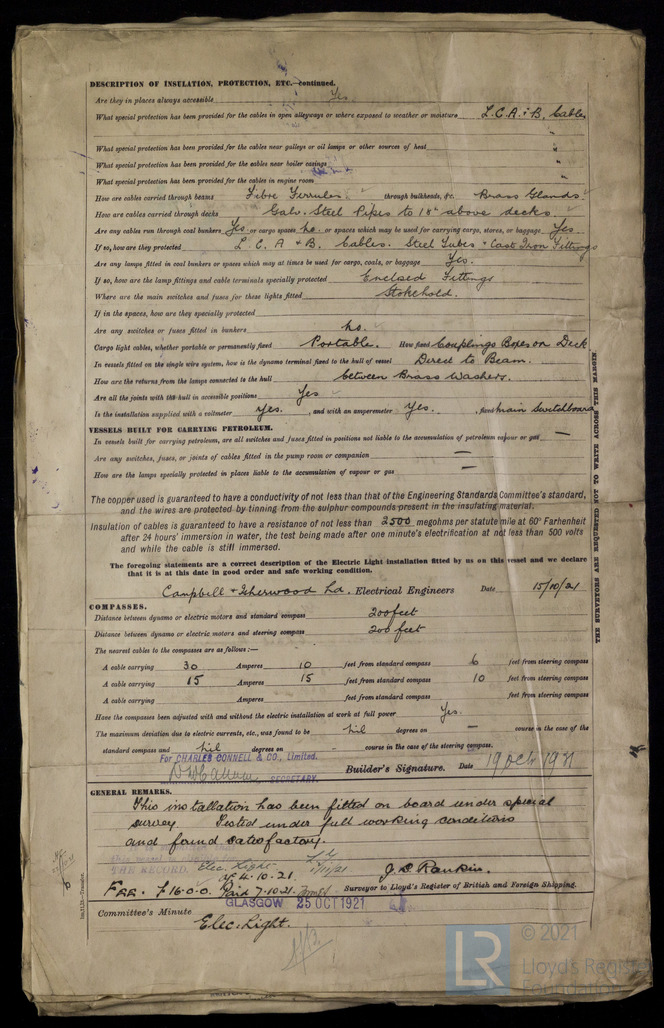 DESCRIPTION OF INSULATION, PROTECTION, ETC.—continued.
Are they in places always accessible Yes
What special protection has been provided for the cables in open alleyways or where exposed to weather or moisture L.C.A. & B. Cables
What special protection has been provided for the cables near galleys or oil lamps or other sources of heat "
What special protection has been provided for the cables near boiler casings "
What special protection has been provided for the cables in engine room "
How are cables carried through beams Fibre Ferrules through bulkheads, &c. Brass Glands
How are cables carried through decks Galv. Steel Pipes to 18" above decks.
Are any cables run through coal bunkers Yes or cargo spaces no. or spaces which may be used for carrying cargo, stores, or baggage Yes
If so, how are they protected L. C. A & B. Cables. Steel Tubes & Cast Iron Fittings
Are any lamps fitted in coal bunkers or spaces which may at times be used for cargo, coals, or baggage Yes.
If so, how are the lamp fittings and cable terminals specially protected Enclosed Fittings
Where are the main switches and fuses for these lights fitted Stokehold.
If in the spaces, how are they specially protected
Are any switches or fuses fitted in bunkers no.
Cargo light cables, whether portable or permanently fixed Portable. How fixed Couplings Boxes on Deck
In vessels fitted on the single wire system, how is the dynamo terminal fixed to the hull of vessel Direct to Beam.
How are the returns from the lamps connected to the hull between Brass Washers.
Are all the joints with the hull in accessible positions Yes
Is the installation supplied with a voltmeter Yes. , and with an amperemeter Yes. , fixed Main Switchboard
VESSELS BUILT FOR CARRYING PETROLEUM.
In vessels built for carrying petroleum, are all switches and fuses fitted in positions not liable to the accumulation of petroleum vapour or gas —
Are any switches, fuses, or joints of cables fitted in the pump room or companion —
How are the lamps specially protected in places liable to the accumulation of vapour or gas —
The copper used is guaranteed to have a conductivity of not less than that of the Engineering Standards Committee's standard,
and the wires are protected by tinning from the sulphur compounds present in the insulating material.
Insulation of cables is guaranteed to have a resistance of not less than 2500 megohms per statute mile at 60° Farhenheit
after 24 hours' immersion in water, the test being made after one minute's electrification at not less than 500 volts
and while the cable is still immersed.
The foregoing statements are a correct description of the Electric Light installation fitted by us on this vessel and we declare
that it is at this date in good order and safe working condition.
Campbell & Isherwood Ld. Electrical Engineers Date 15/10/21
COMPASSES.
Distance between dynamo or electric motors and standard compass 200 feet
Distance between dynamo or electric motors and steering compass 200 feet
The nearest cables to the compasses are as follows:—
A cable carrying 30 Amperes 10 feet from standard compass 6 feet from steering compass
A cable carrying 15 Amperes 15 feet from standard compass 10 feet from steering compass
A cable carrying Amperes feet from standard compass feet from steering compass
Have the compasses been adjusted with and without the electric installation at work at full power Yes.
The maximum deviation due to electric currents, etc., was found to be nil degrees on — course in the case of the
standard compass and nil degrees on - course in the case of the steering compass.
For CHARLES CONNELL & CO., Limited.
SECRETARY. Builder's Signature. Date 19 Oct 1921
GENERAL REMARKS.
This installation has been fitted on board under special
survey. Tested under full working conditions
and found satisfactory.
THE RECORD. Elec. Light
J. S. Rankin.
Surveyor to Lloyd's Register of British and Foreign Shipping.
Fee. £16-0-0. Paid 7-10-21
GLASGOW 25 OCT 1921
Committee's Minute
Elec. Light.
THE SURVEYORS ARE REQUESTED NOT TO WRITE ACROSS THIS MARGIN
LR
© 2021
Lloyd's Register
Foundation